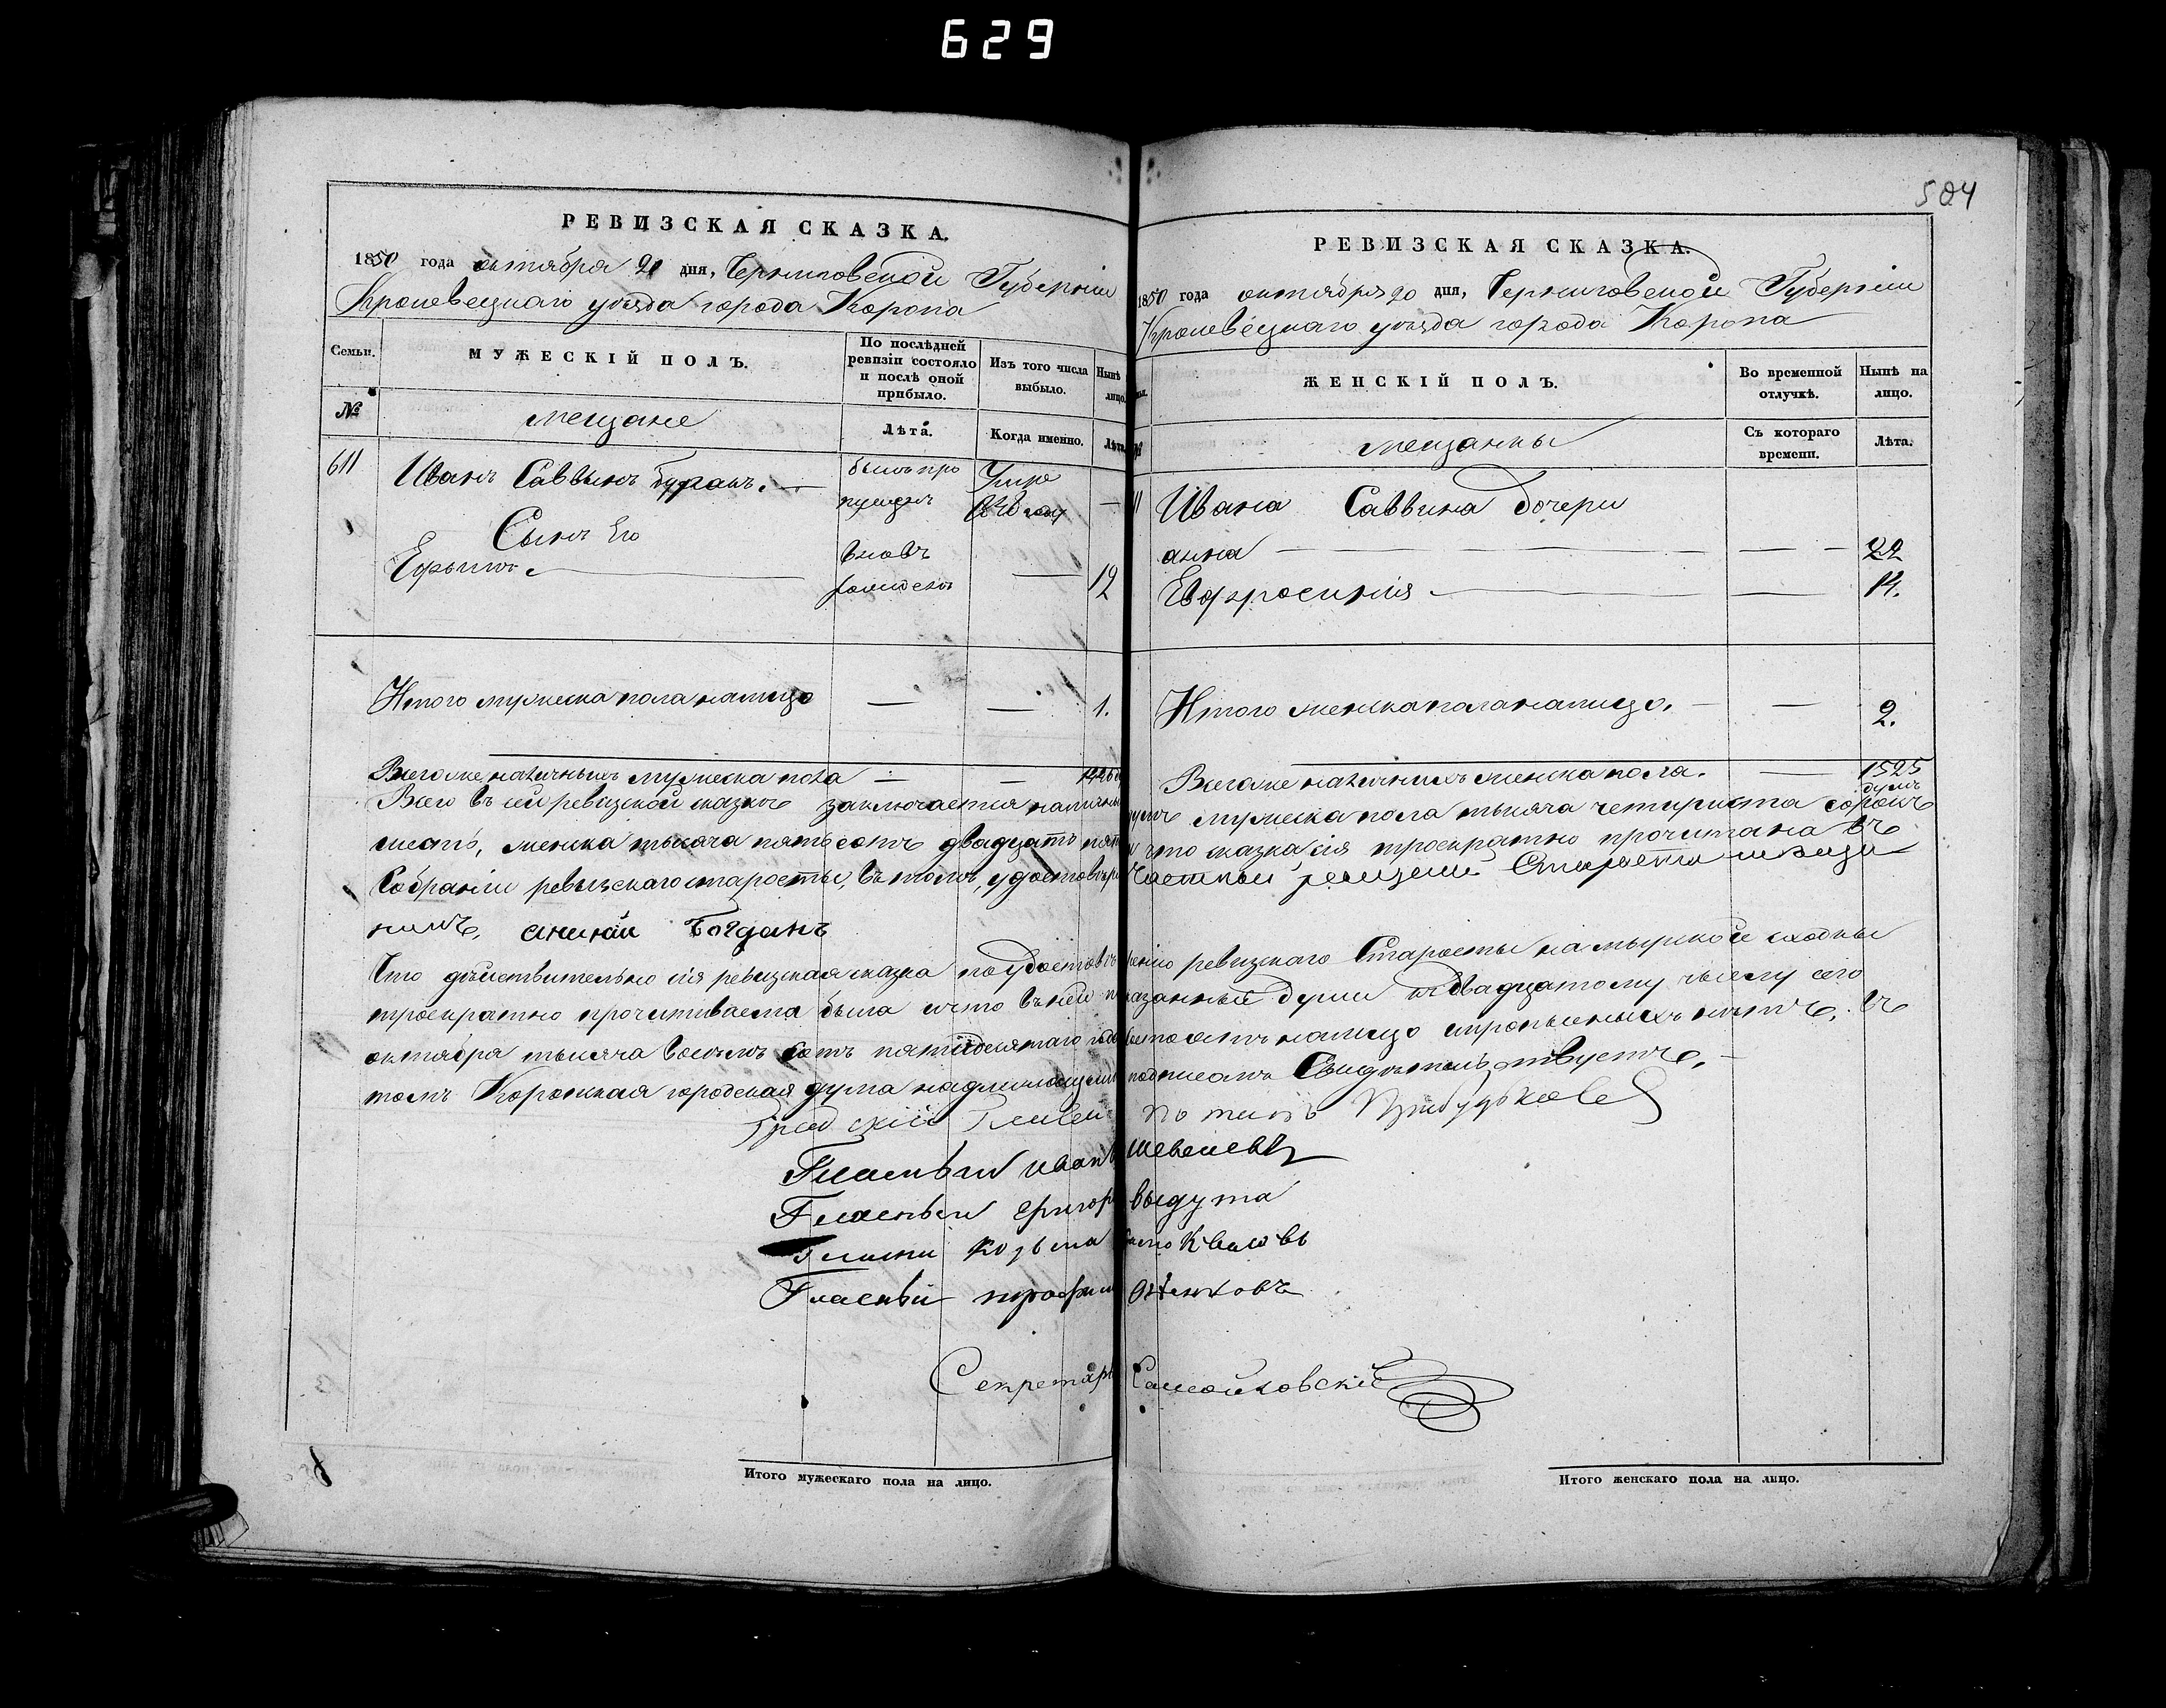 629
504
РЕВИЗСКАЯ СКАЗКА.
1850 года октября 20 дня, Черниговской Губерніи
Кролевецкаго уѣзда города Коропа
Семьи.
МУЖЕСКІЙ ПОЛЪ.
По послѣдней ревизіи состояло и послѣ оной прибыло.
Изъ того числа выбыло.
Нынѣ лицо.
№
мещане
Лѣта.
Когда именно.
Лѣта
611
Иванъ Саввинъ
былъ про
пущенъ
Умре
году
—
Сынъ Его
Ефимъ
вновь
рожденъ
—
12
Итого мужеска пола налицо — — 1.
Всего же наличныхъ мужеска пола — —
РЕВИЗСКАЯ СКАЗКА.
1850 года октября 20 дня, Черниговской Губерніи
Кролевецкаго уѣзда города Коропа
ЖЕНСКІЙ ПОЛЪ.
Во временной отлучкѣ.
Нынѣ на лицо.
мещанки
Съ котораго времени.
Лѣта.
Ивана Саввина дочери
анна — — 22
Евфросинія — — 14.
Итого женска пола налицо. — — 2.
Всего же наличныхъ женска пола. — 1525
душъ
Всего въ сей ревизской сказкѣ заключается наличных душъ мужеска пола тысяча четыриста сорокъ
шесть, женска тысяча пятьсотъ двадцать пять и что сказка сія троекратно прочитана въ
Собраніи ревизскаго старосты, въ томъ,
Богданъ
Что дѣйствительно сія ревизская сказка по удостовѣренію ревизскаго Старосты на мырской сходкы
троекратно прочитываема была и что въ ней показанный души двадцатому числу сего
октября тысяча восемъ сотъ пятидесятаго года состоятъ налицо и прописныхъ нѣтъ, въ
томъ Коропская городская дума надлежащимъ подписомъ Свидѣтельствуетъ.
Градскій
Гласный иванъ Шевелевъ
Гласный григор выдута
козьма
Гласный
Секретарь Самойловскій
Итого мужескаго пола на лицо.
Итого женскаго пола на лицо.